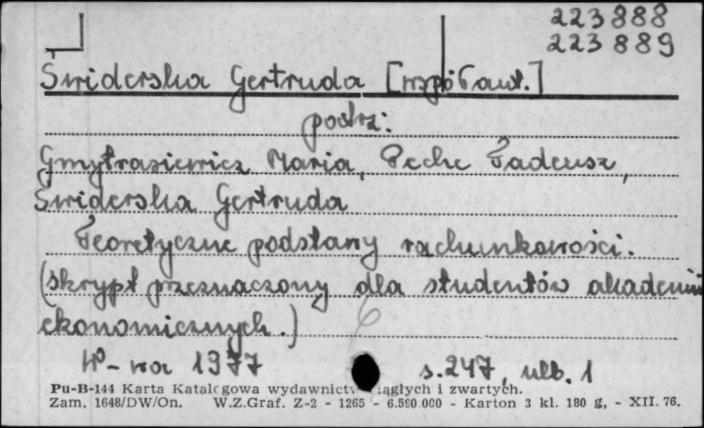 223888
223889
Świderska Gertruda [współaut.]
patrz:
Gmytrasiewicz Maria, Peche Tadeusz,
Świderska Gertruda
Teoretyczne podstawy rachunkowości.
(skrypt przeznaczony dla studentów akademii
ekonomicznych.)
W-wa 1977 s. 247, ulb. 1
Pu-B-144 Karta Katalogowa wydawnictw ciągłych i zwartych.
Zam. 1648/DW/On. W.Z.Graf. Z-2 - 1265 - 6.590.000 - Karton 3 kl. 180 g, - XII. 76.